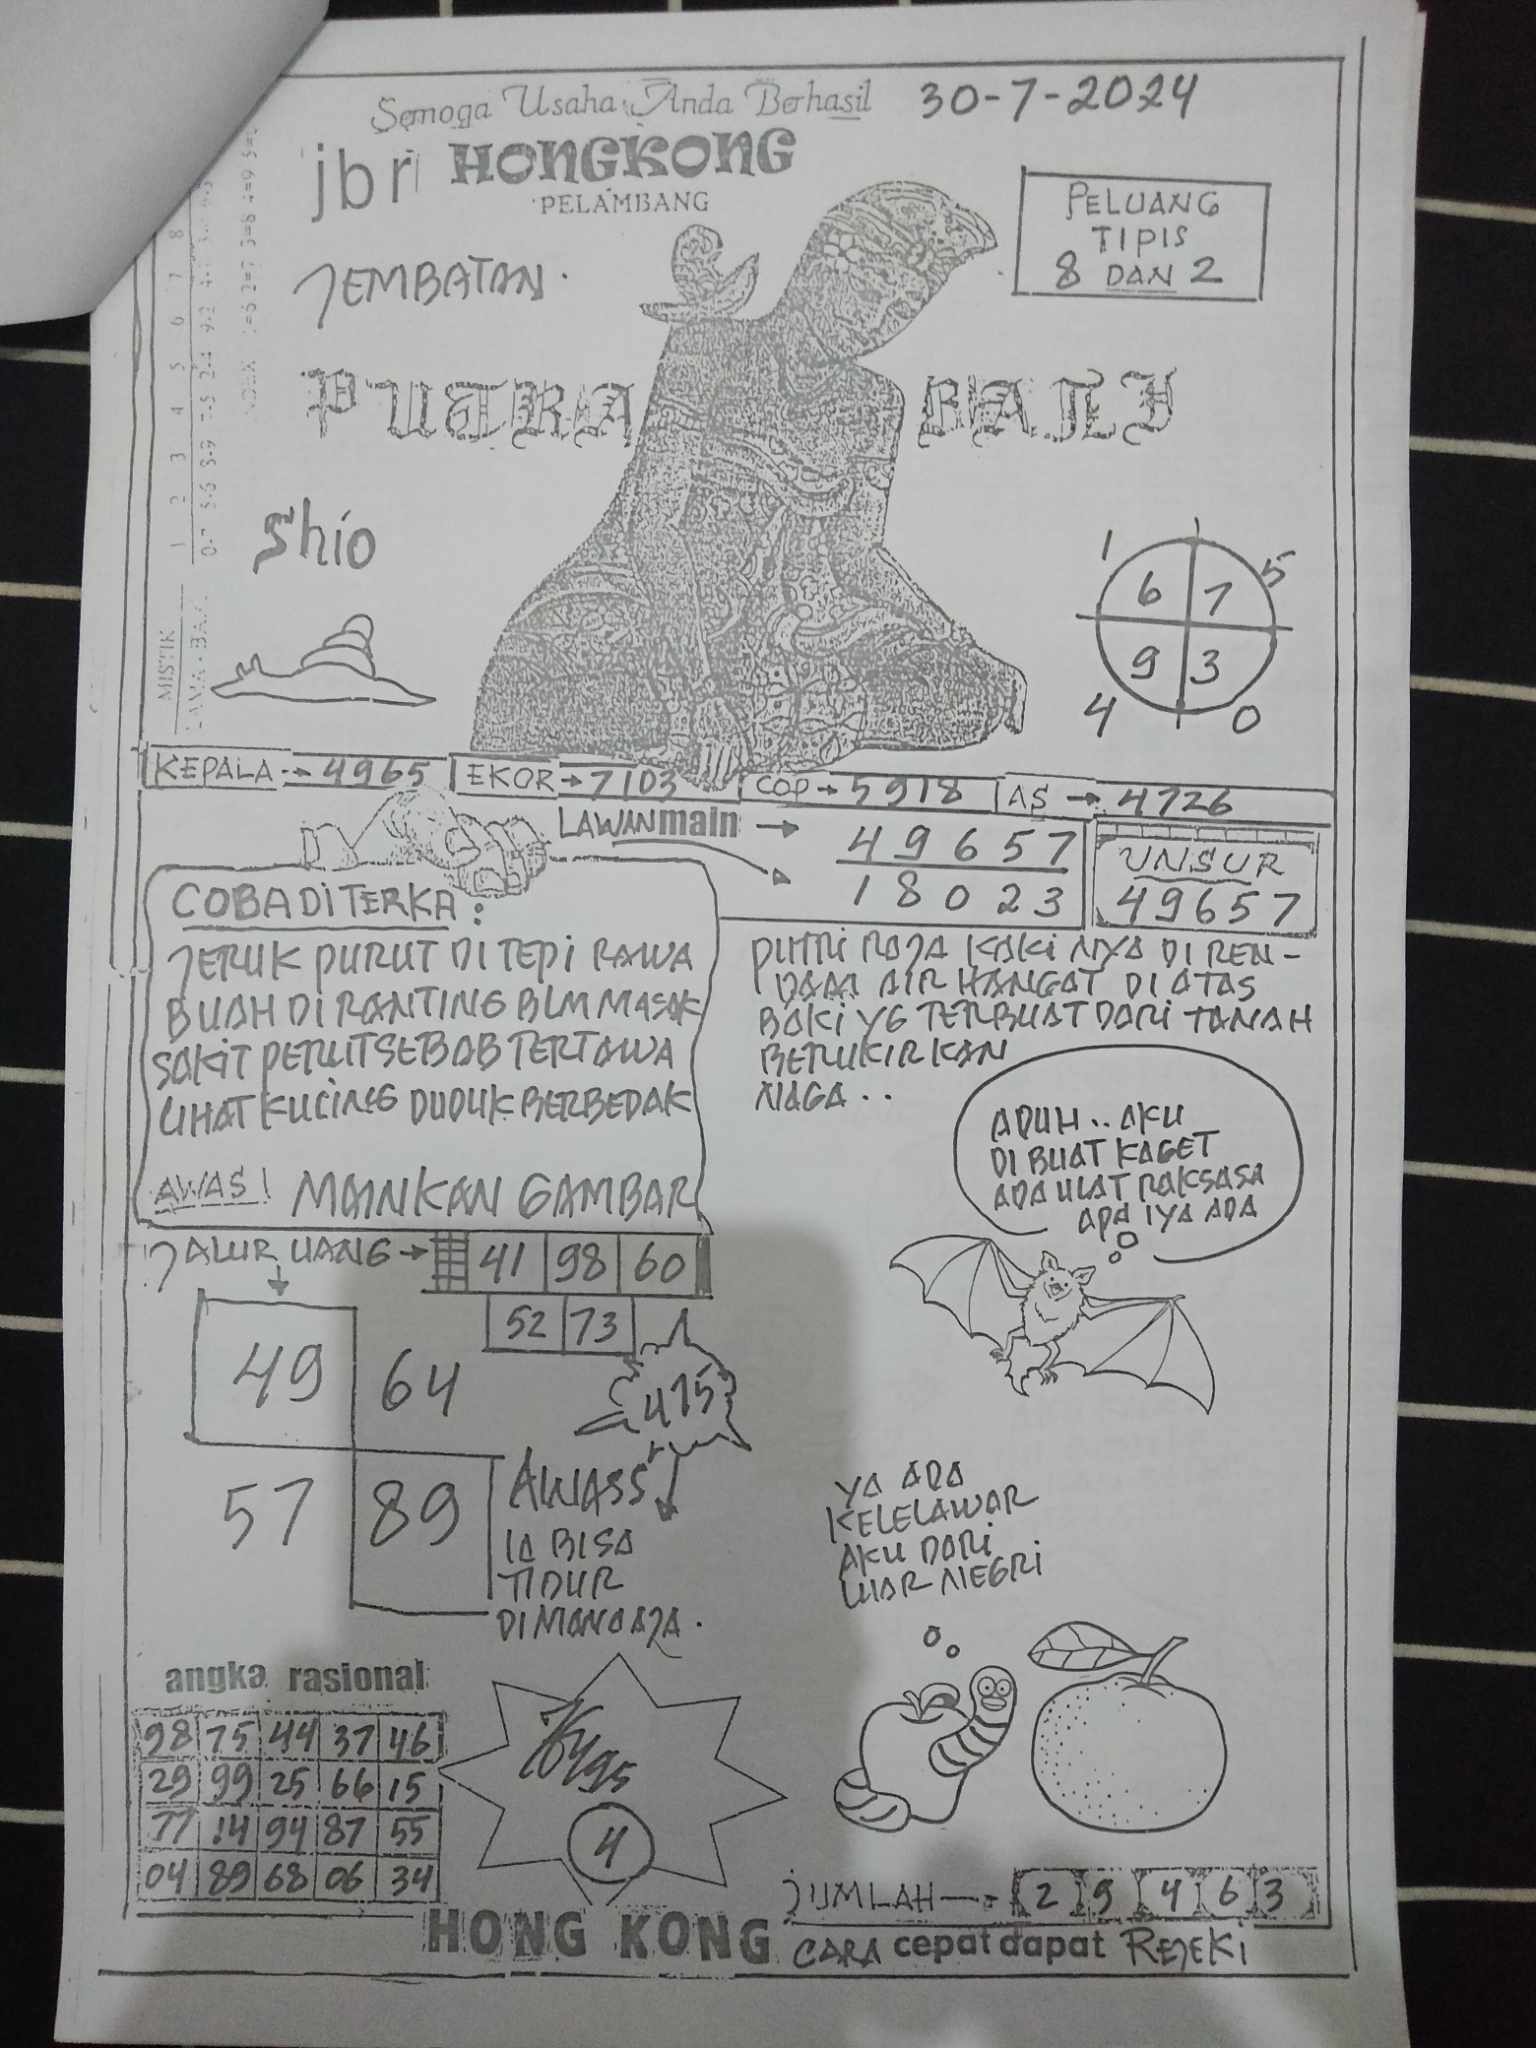 Semoga Usaha Anda Berhasil 30-7-2024
jbr HONGKONG
PELAMBANG
JEMBATAN.
PELUANG
TIPIS
8 DAN 2
PUTRA BALI
Shio
MISTIK
1 2 3 4 5 6 7 8
1 5
6 7
9 3
4 0
KEPALA → 4965 EKOR → 7103 COP → 5918 AS → 4726
LAWAN main → 49657
18023
UNSUR
49657
COBA DI TERKA :
JERUK PURUT DI TEPI RAWA
BUAH DI RANTING BLM MASAK
SAKIT PERUT SEBAB TERTAWA
LIHAT KUCING DUDUK BERBEDAK
AWAS! MAINKAN GAMBAR
PUTRI RAJA KAKI NYA DI REN-
DAM AIR HANGAT DI ATAS
BAKI YG TERBUAT DARI TANAH
BERUKIRKAN
NAGA..
ADUH.. AKU
DI BUAT KAGET
ADA ULAT RAKSASA
APA IYA ADA
JALUR UANG → 41 98 60
52 73
49 64
57 89
475
AWASS
IA BISA
TIDUR
DIMANOAJA.
YA ADA
KELELAWAR
AKU DARI
LUAR NEGRI
angka rasional
98 75 44 37 46
29 99 25 66 15
77 14 94 87 55
04 89 68 06 34
4
JUMLAH → 2 9 4 6 3
HONG KONG CARA cepat dapat REJEKI